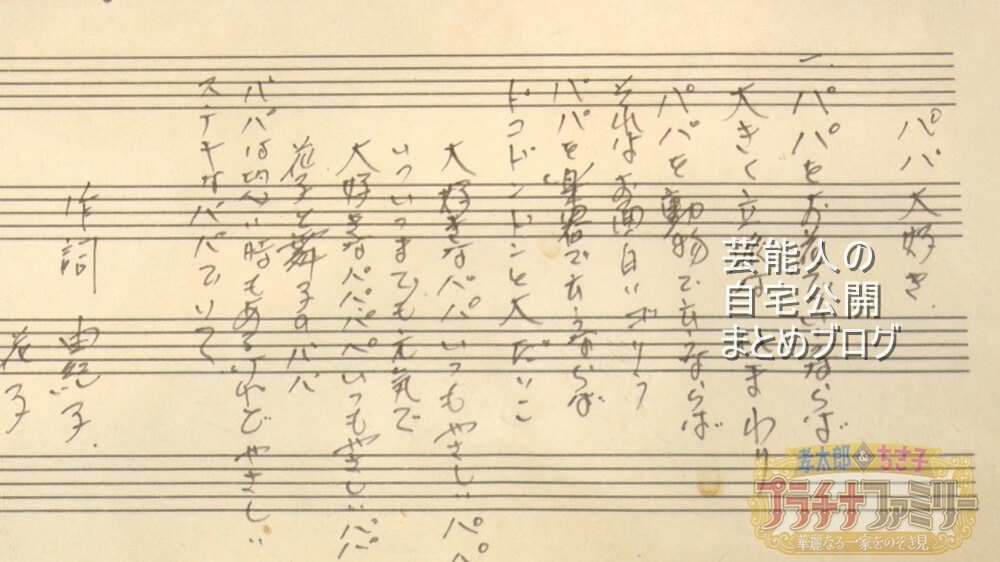 パパ大好き
一.
パパをお花でいうならば
大きく立派なひまわり
パパを動物で云うならば
それはお面白いゴリラ
パパを楽器で云うならば
ドコドンドンと大だいこ
大好きなパパいつもやさしいパパ
いついつまでも元気で
大好きなパパパパいつもやさしいパパ
花子と舞子のパパ
パパは時もあるけれどやさしい
ステキなパパでいて
作詞 由紀子
花子
芸能人の
自宅公開
まとめブログ
孝太郎&ちさ子
プラチナファミリー
華麗なる一家をのぞき見